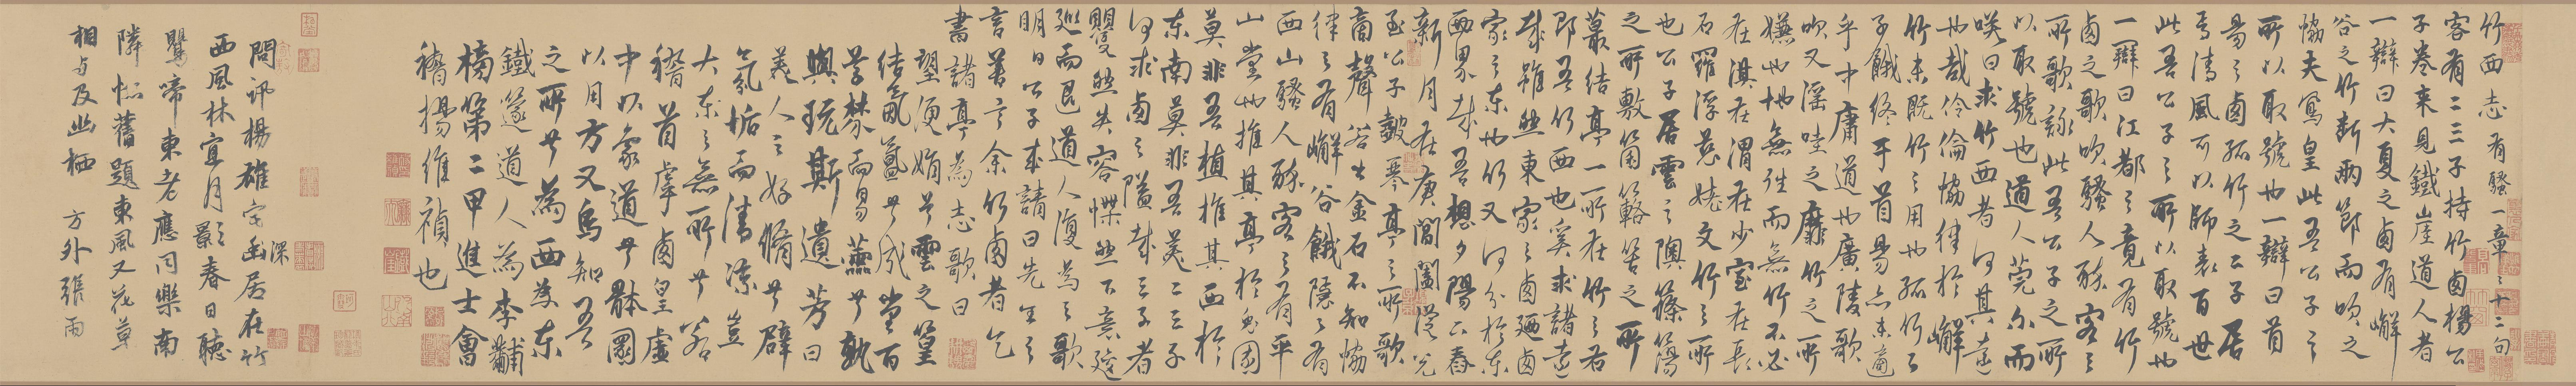 竹西志 有騷一章章十二句
客有二三子持竹西楊公
子卷來見鐵崖道人者
一辯曰大夏之西有嶰
谷之竹斷兩節而吹之
協夫鳳皇此吾公子之
所以取號也一辯曰首
昜之西孤竹之二子居
焉清風可以師表百世
此吾公子之所以取號也
一辯曰江都之竟有竹
西之歌吹騷人醉客之
所歌詠此吾公子之所
以取號也道人莞尓而
唉曰求竹西者何其遠
也哉伶倫協律於嶰
竹未既竹之用也孤竹之
子餓終于首昜亦未適
乎中庸道也廣陵歌
吹又滛哇之靡竹之所
嫌也地無往而無竹不必
在淇在渭在少室在長
石羅浮慈姥文竹之所
也公子居雲之隩篠簜
之所敷箘簵箁之所
藂結亭一所在竹之右
即吾竹西也奚求諸遠
哉雖然東家之西廼西
家之東也竹又何分於東
西界哉吾想夕陽下舂
新月在庚閶闔從兌
至公子鼓琴亭之所歌
商聲若出金石不知協
律之有嶰谷餓隱之有
西山騷人醉客之有平
山堂也推其亭於兎園
莫非吾植推其西於
東南莫非吾美二三子
何求西之隘哉三子者
矍然失容慄然下意逡
巡而退道人復為之歌
明日公子來請曰先生之
言善言余竹西者乞
書諸亭為志歌曰
望便娟兮雲之篁
結氤氳兮成堂百
草棼而易蕪兮孰
與玩斯遺芳曰
美人之好脩兮辟
氛垢而清凉豈
大東之無所兮若
稽首乎西皇虛
中以象道兮體圓
以用方又烏知吾
之所兮為西為東
鐵篴道人為李黼
榜第二甲進士會
稽楊維禎也
問訊楊雄宅幽居在竹 深
西風林宜月影春日聽
鶯啼東老應同樂南
隣恠舊題東風又花草
相与及幽栖 方外張雨